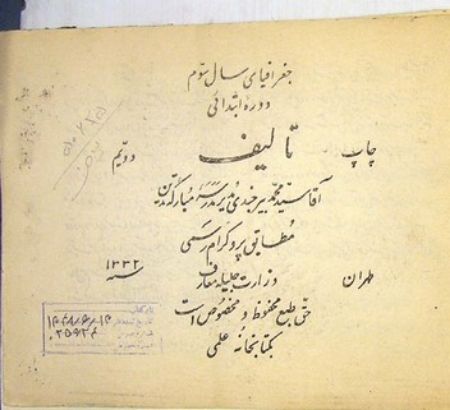 جغرافیای سال سوّم
دورهٔ ابتدائی
چاپ تألیف دویّم
آقا سیّد محمّد بیرجندی مدیر مدرسه مبارکه تدیّن
مطابق پروگرام رسمی
طهران وزارت جلیله معارف سنه ۱۳۳۲
حقّ طبع محفوظ و مخصوص است
بکتابخانهٔ علمی